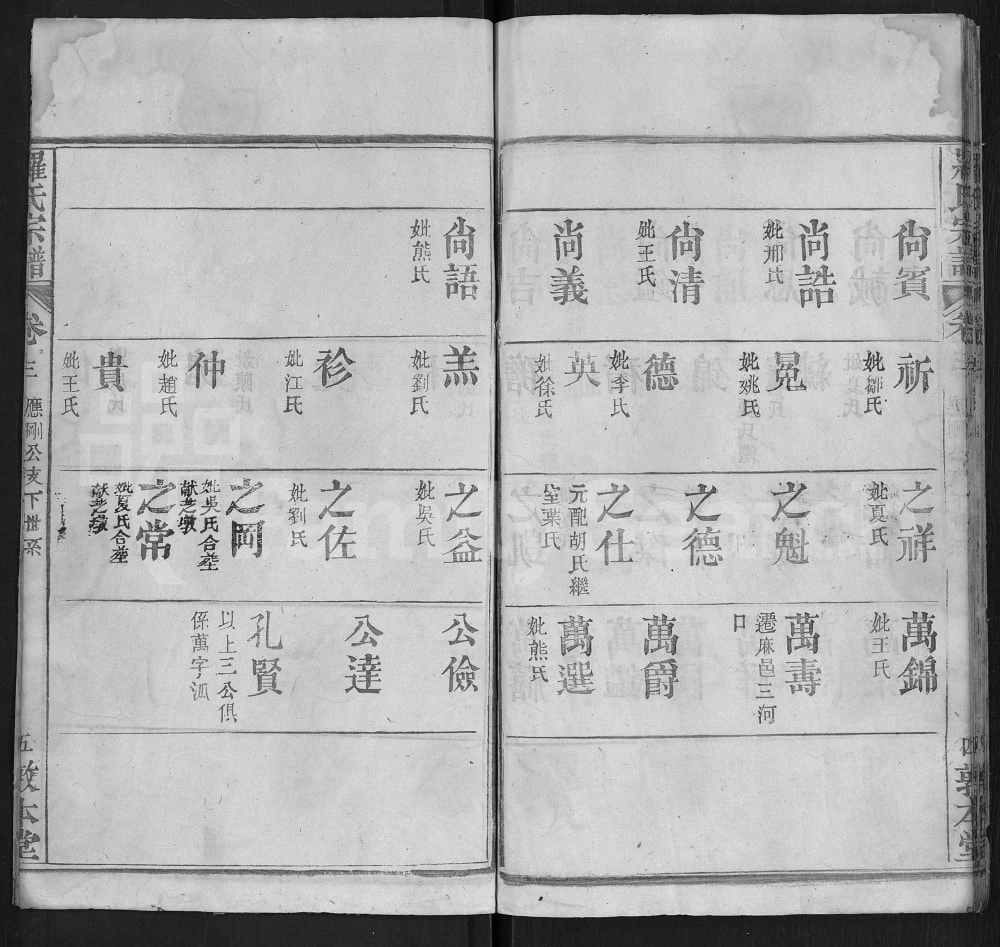 尙賓
尙誥
妣邢氏
尙清
妣王氏
尙義
祈
妣鄒氏
冕
妣姚氏
德
妣李氏
英
妣徐氏
之祥
妣夏氏
之魁
之德
之仕
元配胡氏繼
室葉氏
萬錦
妣王氏
萬壽
遷麻邑三河
口
萬爵
萬選
妣熊氏
四
敦本堂
尙語
妣熊氏
羔
妣劉氏
衫
妣江氏
仲
妣趙氏
貴
妣王氏
之益
妣吳氏
之佐
妣劉氏
之岡
妣吳氏合塟
献芝墩
之常
妣夏氏合塟
献芝墩
公儉
公達
孔賢
以上三公俱
係萬字派
羅氏宗譜
卷三
應剛公支下世系
五
敦本堂